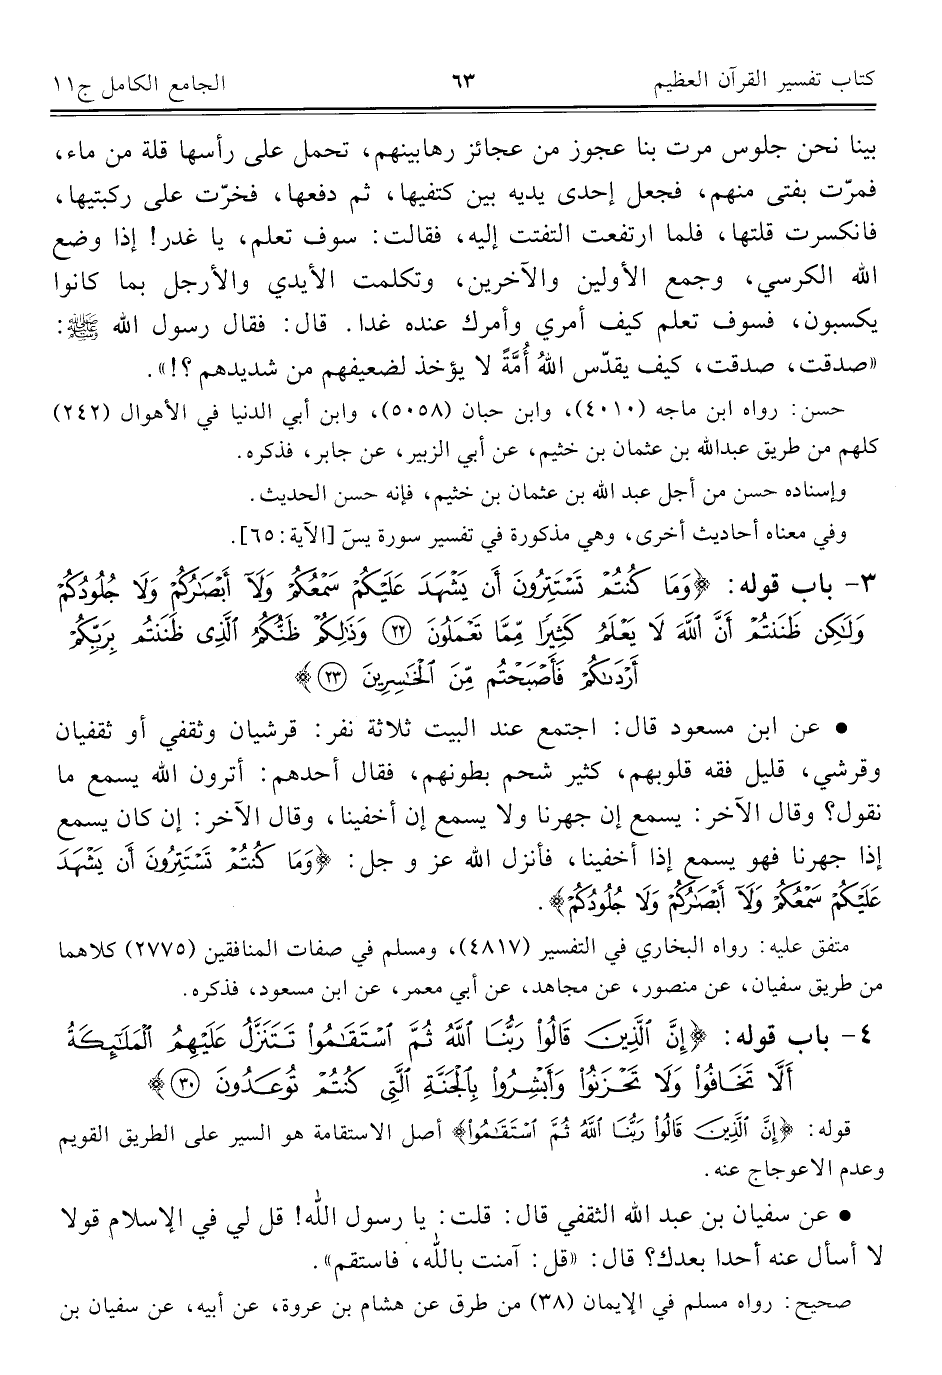 كتاب تفسير القرآن العظيم ٦٣ الجامع الكامل ج١١
بينا نحن جلوس مرت بنا عجوز من عجائز رهابينهم، تحمل على رأسها قلة من ماء،
فمرّت بفتى منهم، فجعل إحدى يديه بين كتفيها، ثم دفعها، فخرّت على ركبتيها،
فانكسرت قلتها، فلما ارتفعت التفتت إليه، فقالت: سوف تعلم، يا غدر! إذا وضع
الله الكرسي، وجمع الأولين والآخرين، وتكلمت الأيدي والأرجل بما كانوا
يكسبون، فسوف تعلم كيف أمري وأمرك عنده غدا. قال: فقال رسول الله ﷺ:
«صدقت، صدقت، كيف يقدّس اللهُ أُمَّةً لا يؤخذ لضعيفهم من شديدهم ؟!».
حسن: رواه ابن ماجه (٤٠١٠)، وابن حبان (٥٠٥٨)، وابن أبي الدنيا في الأهوال (٢٤٢)
كلهم من طريق عبدالله بن عثمان بن خثيم، عن أبي الزبير، عن جابر، فذكره.
وإسناده حسن من أجل عبد الله بن عثمان بن خثيم، فإنه حسن الحديث.
وفي معناه أحاديث أخرى، وهي مذكورة في تفسير سورة يسٓ [الآية: ٦٥].
٣- باب قوله: ﴿وَمَا كُنتُمْ تَسْتَتِرُونَ أَن يَشْهَدَ عَلَيْكُمْ سَمْعُكُمْ وَلَآ أَبْصَٰرُكُمْ وَلَا جُلُودُكُمْ
وَلَٰكِن ظَنَنتُمْ أَنَّ ٱللَّهَ لَا يَعْلَمُ كَثِيرًا مِّمَّا تَعْمَلُونَ ﴿٢٢﴾ وَذَٰلِكُمْ ظَنُّكُمُ ٱلَّذِى ظَنَنتُم بِرَبِّكُمْ
أَرْدَىٰكُمْ فَأَصْبَحْتُم مِّنَ ٱلْخَٰسِرِينَ ﴿٢٣﴾﴾
• عن ابن مسعود قال: اجتمع عند البيت ثلاثة نفر: قرشيان وثقفي أو ثقفيان
وقرشي، قليل فقه قلوبهم، كثير شحم بطونهم، فقال أحدهم: أترون الله يسمع ما
نقول؟ وقال الآخر: يسمع إن جهرنا ولا يسمع إن أخفينا، وقال الآخر: إن كان يسمع
إذا جهرنا فهو يسمع إذا أخفينا، فأنزل الله عز و جل: ﴿وَمَا كُنتُمْ تَسْتَتِرُونَ أَن يَشْهَدَ
عَلَيْكُمْ سَمْعُكُمْ وَلَآ أَبْصَٰرُكُمْ وَلَا جُلُودُكُمْ﴾.
متفق عليه: رواه البخاري في التفسير (٤٨١٧)، ومسلم في صفات المنافقين (٢٧٧٥) كلاهما
من طريق سفيان، عن منصور، عن مجاهد، عن أبي معمر، عن ابن مسعود، فذكره.
٤- باب قوله: ﴿إِنَّ ٱلَّذِينَ قَالُوا۟ رَبُّنَا ٱللَّهُ ثُمَّ ٱسْتَقَٰمُوا۟ تَتَنَزَّلُ عَلَيْهِمُ ٱلْمَلَٰٓئِكَةُ
أَلَّا تَخَافُوا۟ وَلَا تَحْزَنُوا۟ وَأَبْشِرُوا۟ بِٱلْجَنَّةِ ٱلَّتِى كُنتُمْ تُوعَدُونَ ﴿٣٠﴾﴾
قوله: ﴿إِنَّ ٱلَّذِينَ قَالُوا۟ رَبُّنَا ٱللَّهُ ثُمَّ ٱسْتَقَٰمُوا۟﴾ أصل الاستقامة هو السير على الطريق القويم
وعدم الاعوجاج عنه.
• عن سفيان بن عبد الله الثقفي قال: قلت: يا رسول الله! قل لي في الإسلام قولا
لا أسأل عنه أحدا بعدك؟ قال: «قل: آمنت بالله، فاستقم».
صحيح: رواه مسلم في الإيمان (٣٨) من طرق عن هشام بن عروة، عن أبيه، عن سفيان بن